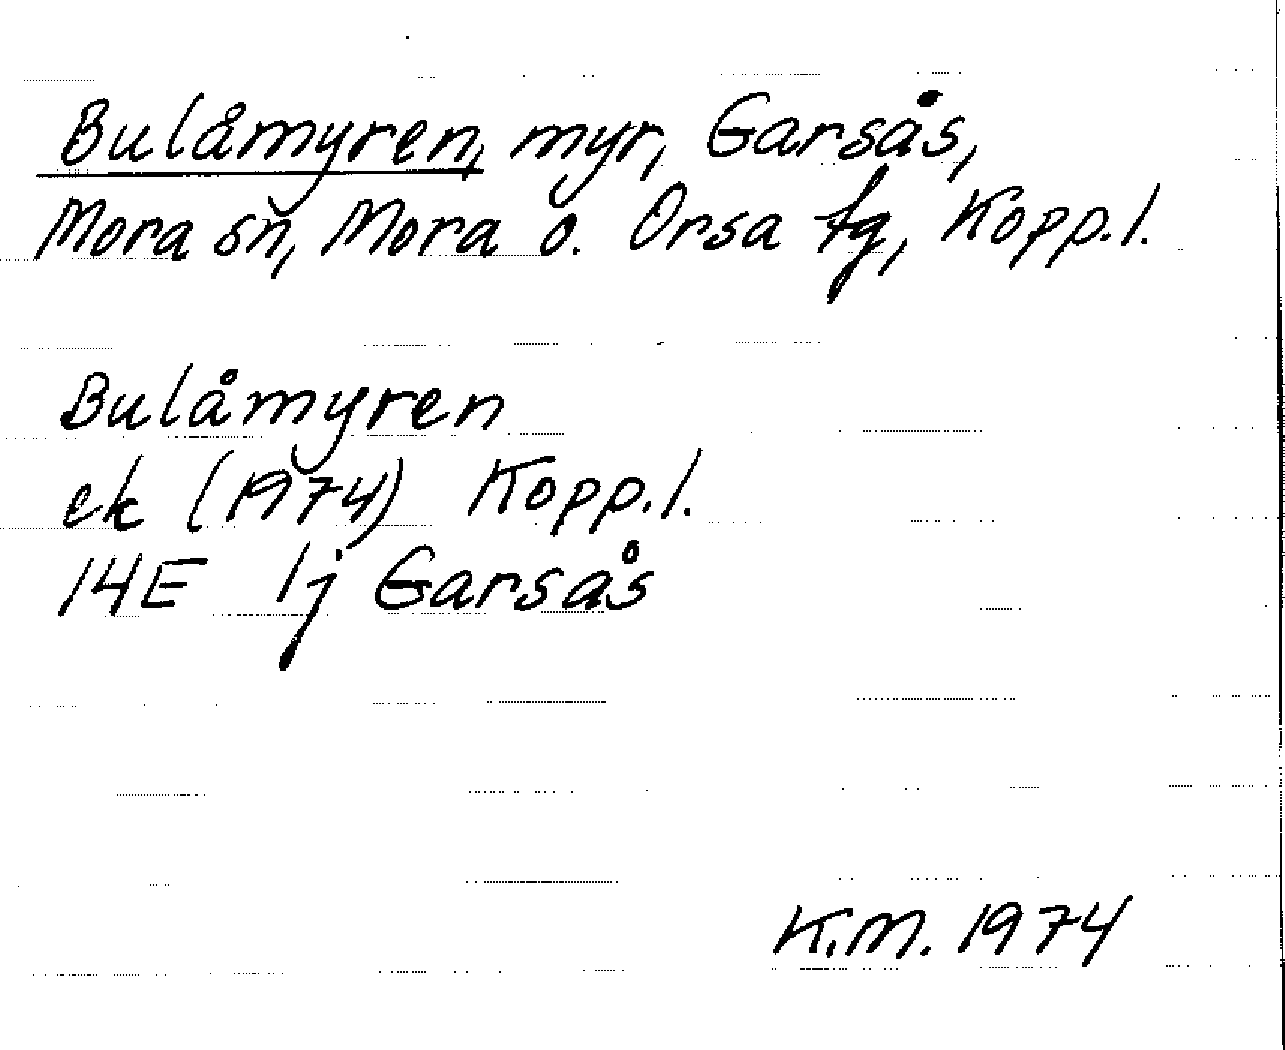 Bulåmyren, myr, Garsås,
Mora sn, Mora o. Orsa tg, Kopp.l.
Bulåmyren
ek (1974) Kopp.l.
14E 1j Garsås
K.M. 1974